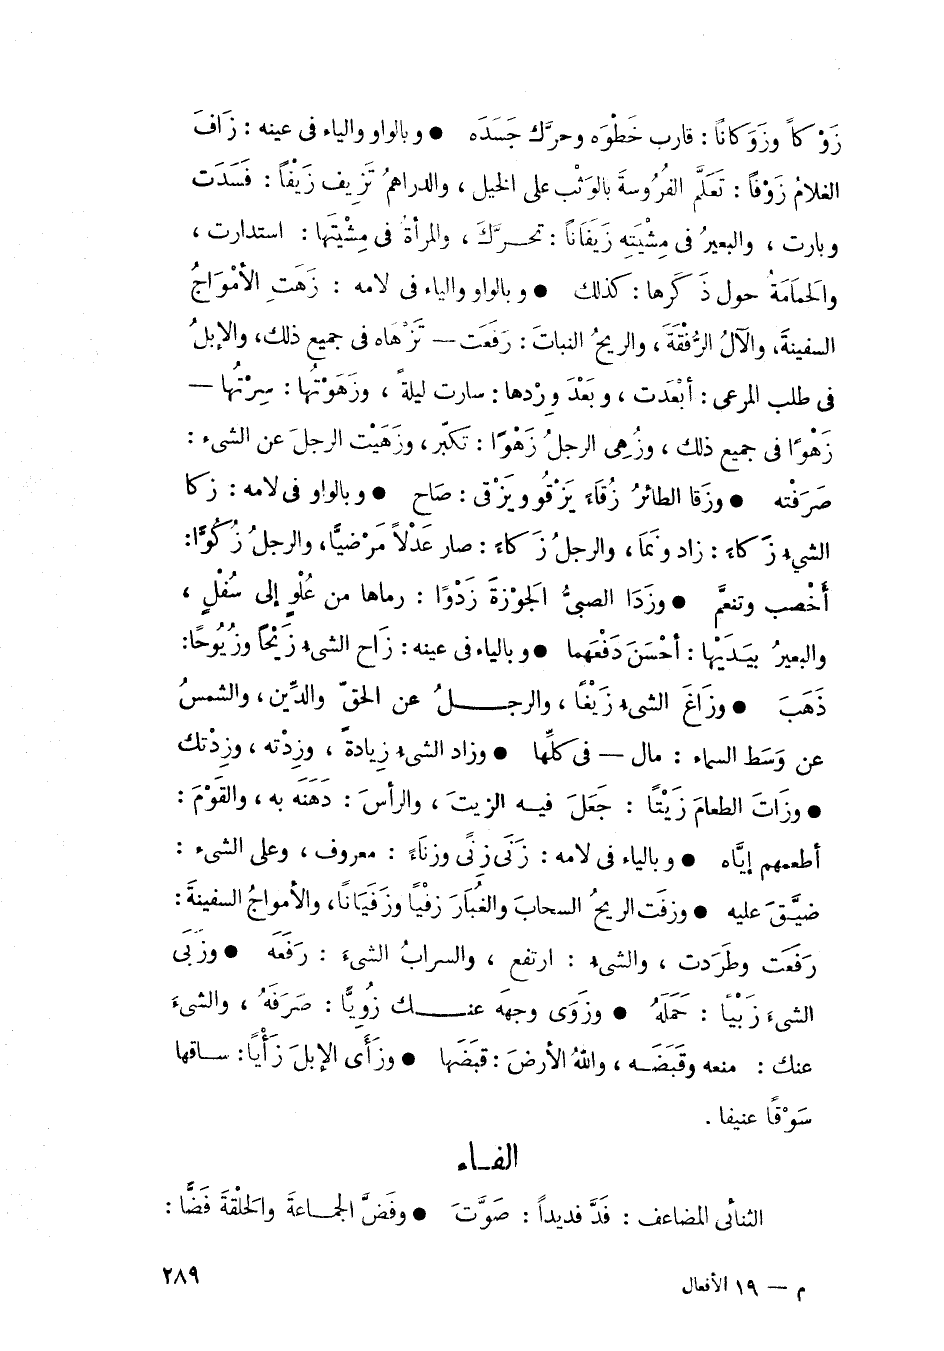 زَوْكاً وزَوَكانًا : قارب خَطْوَه وحرَّك جَسَدَه ● وبالواو والياء فى عينه : زَافَ
الغلامُ زَوْفاً : تَعَلَّم الفُرُوسةَ بالوَثْب على الخيل ، والدراهمُ تَزِيف زَيْفاً : فَسَدَت
وبارت ، والبعيرُ فى مِشْيَتِه زَيَفَاناً : تحـرَّكَ ، والمرأةُ فى مِشْيَتِها : استدارت ،
والحَمَامَةُ حول ذَكَرِها : كذلك ● وبالواو والياء فى لامه : زَهَتِ الأمْوَاجُ
السفينةَ، والآلُ الرُّفْقَةَ ، والريحُ النباتَ : رَفَعَت — تَزْهَاه فى جميع ذلك، والإبلُ
فى طلب المرعى : أبْعَدت ، وبَعْدَ وِرْدها : سارت ليلةً ، وزَهَوْتُها : سِرْتُها —
زَهْوًا فى جميع ذلك ، وزُهِى الرجلُ زَهْوًا : تكبّر ، وزَهَيْت الرجلَ عن الشىء :
صَرَفْته ● وزَقا الطائرُ زُقَاءً يَزْقُو ويَزْقى : صَاح ● وبالواو فى لامه : زكا
الشىءُ زَكاءً : زاد ونَمَا ، والرجلُ زَكاءً : صار عَدْلاً مَرْضيًّا، والرجلُ زُكُوًّا:
أخْصب وتنعَّم ● وزَدَا الصبىُّ الجَوْزةَ زَدْوًا : رماها من عُلْوٍ إلى سُفْلٍ ،
والبعيرُ بيَدَيْها : أحْسَنَ دَفْعَهما ● وبالياء فى عينه : زَاح الشىءُ زَيْحًا وزُيُوحًا:
ذَهَبَ ● وزَاغَ الشىءُ زَيْغًا ، والرجـــلُ عن الحقّ والدِّين ، والشمسُ
عن وَسَط السماء : مال — فى كلِّها ● وزاد الشىءُ زِيادةً ، وزِدْته ، وزِدْتك
● وزَاتَ الطعامَ زَيْتًا : جَعَلَ فيــه الزيتَ ، والرأسَ : دَهَنَه به ، والقَوْمَ :
أطعمهم إيَّاه ● وبالياء فى لامه : زَنَى زِنًى وزِناءً : معروف ، وعلى الشىء :
ضيَّـقَ عليه ● وزفَت الريحُ السحابَ والغُبَارَ زفْيًا وزَفَيَانًا، والأمواجُ السفينةَ :
رَفَعَت وطَرَدت ، والشىءُ : ارتفع ، والسرابُ الشىءَ : رَفَعَه ● وزَبَى
الشىءَ زَبْيًا : حَمَلَهُ ● وزَوَى وجهَه عنـــك زُويًّا : صَرَفَهُ ، والشىءَ
عنك : منعه وقَبَضَـه ، واللهُ الأرضَ : قبَضَها ● وزَأى الإبلَ زَأْيًا : ســاقها
سَوْقًا عنيفا .
الفــاء
الثنائى المضاعف : فَدَّ فديداً : صَوَّتَ ● وفَضَّ الجمــاعةَ والحَلْقةَ فَضًّا :
م — ١٩ الأفعال
٢٨٩